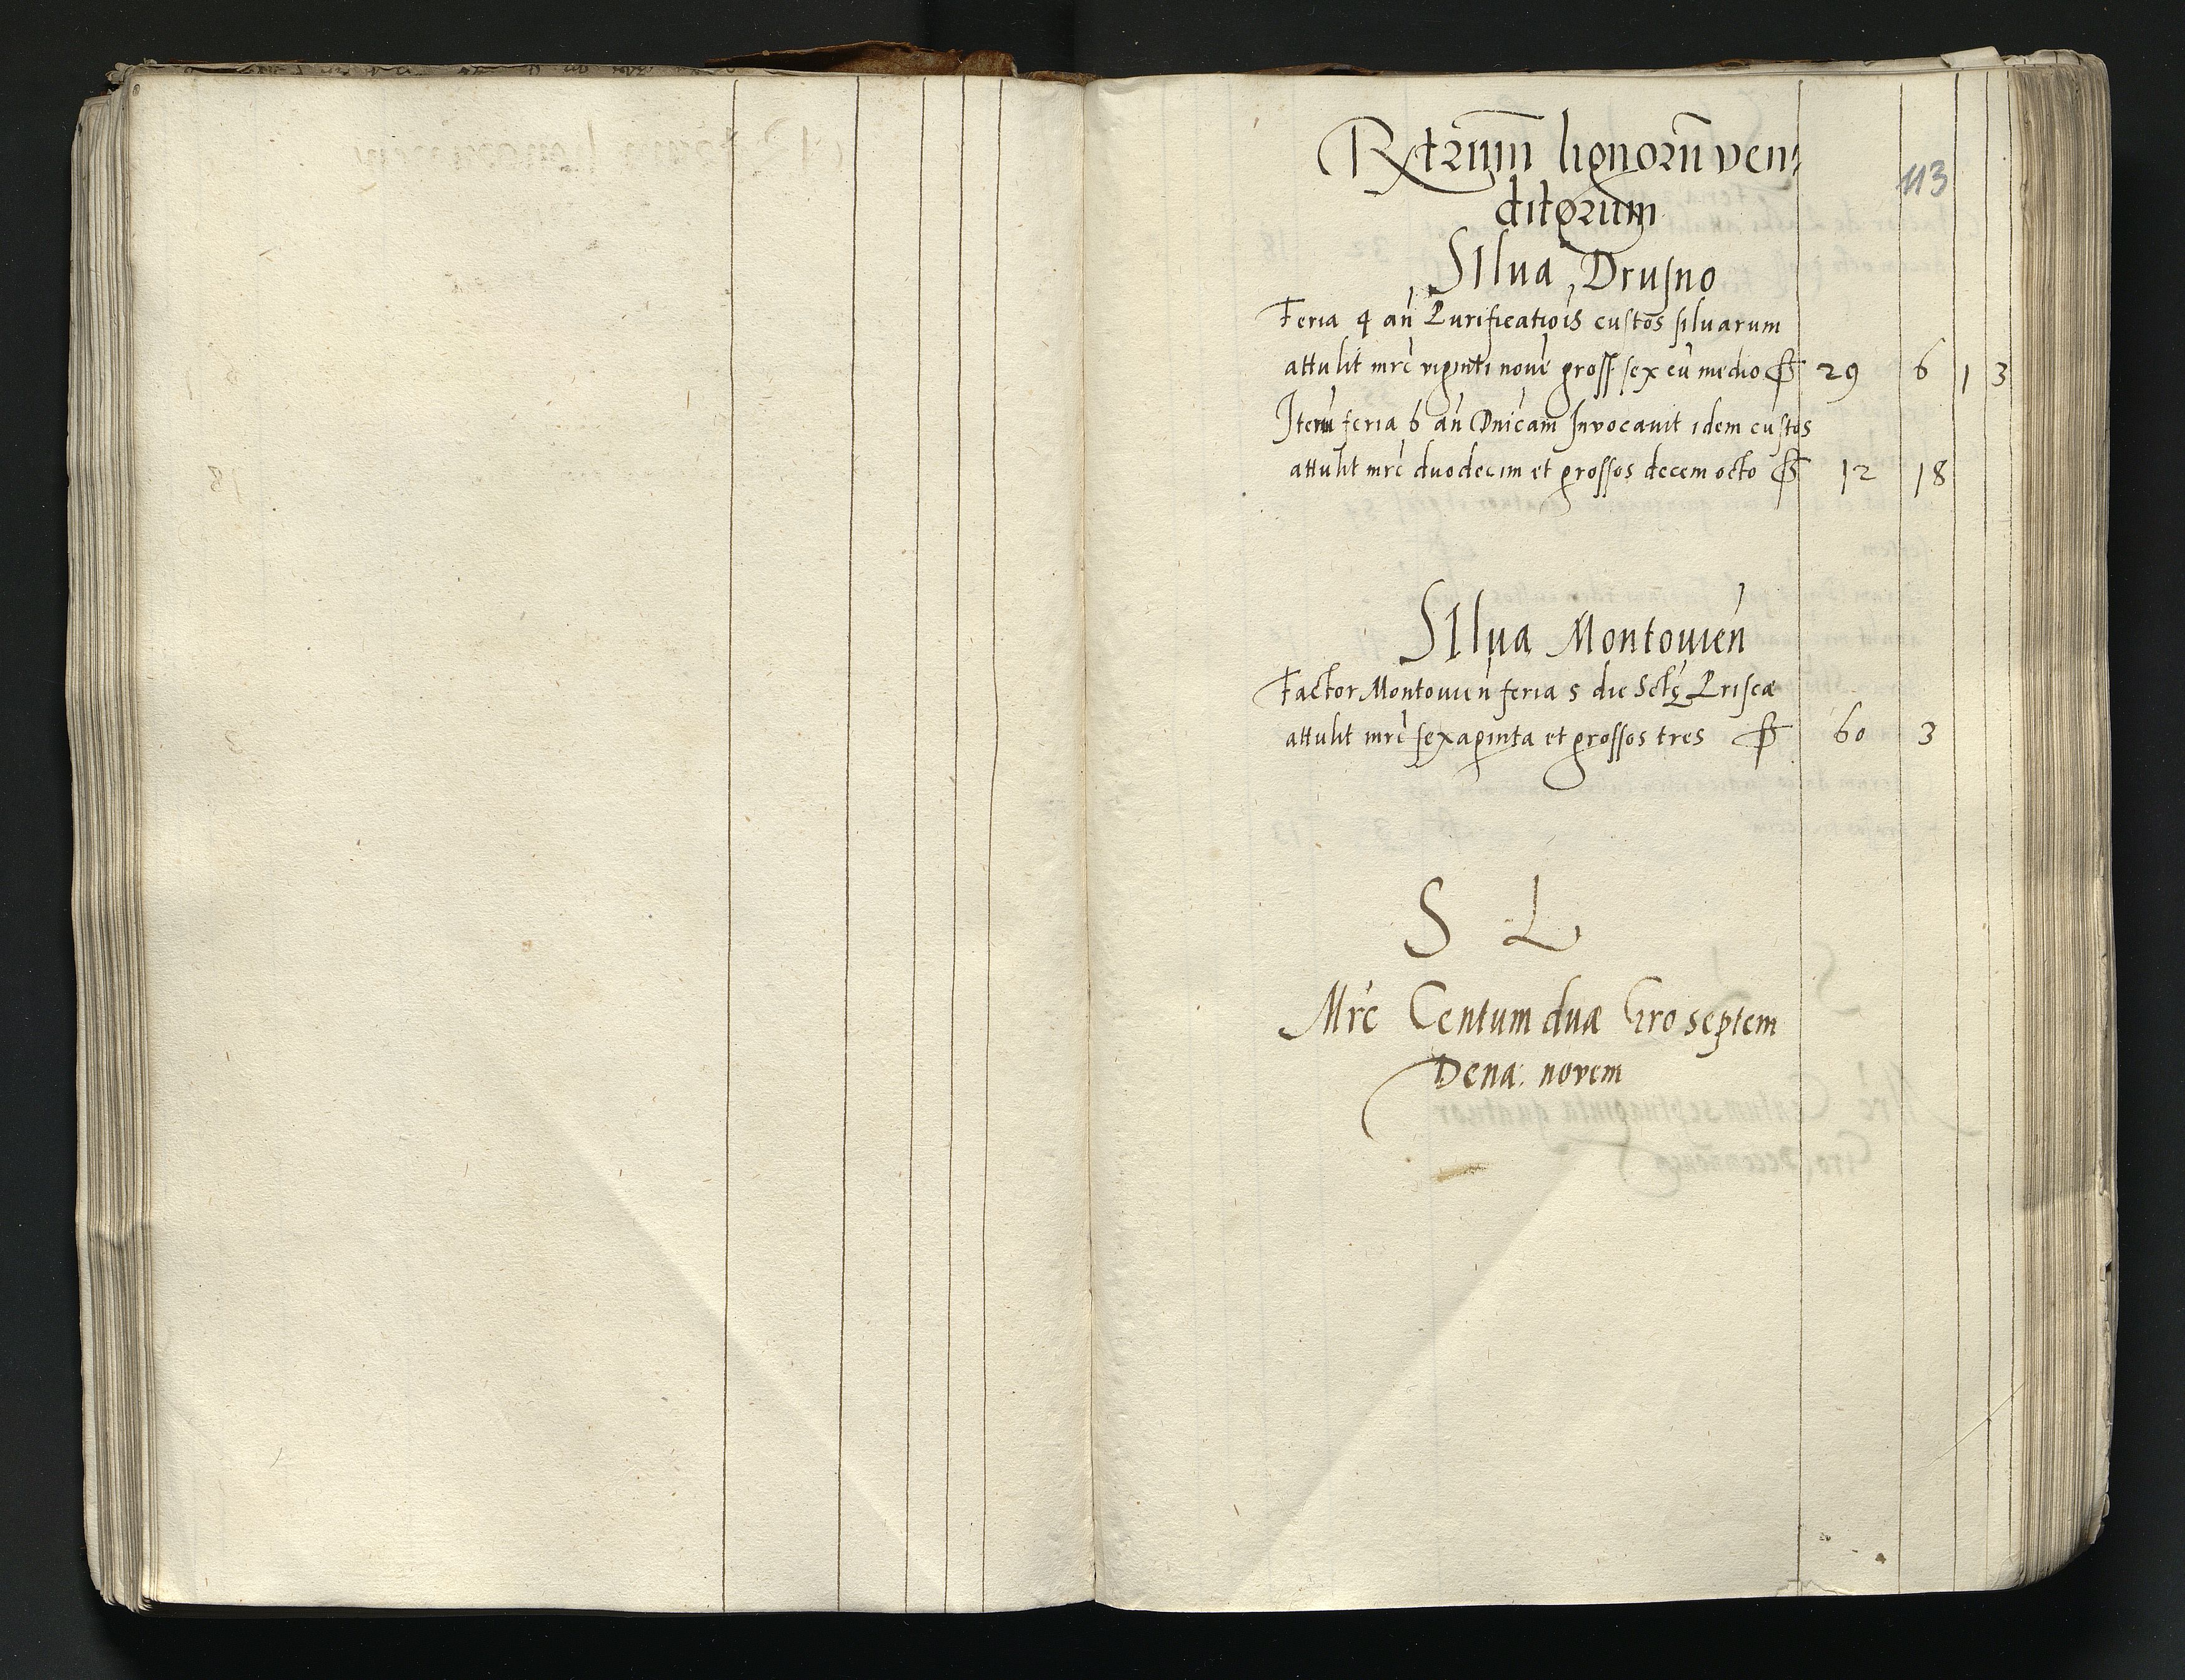 113
Rxtrium̄ lignorū ven⸗
ditorum
Silua Drusno
Feria 4 an̄ Purificatiōis custos siluarum
attulit mrc̄ viginti novē gross sex cū medio ₣ 29 6 1 3
Iterū feria 6 an̄ Dnīcam Invocavit idem custos
attulit mrc̄ duodecim et grossos decem octo ₣ 12 18
Silua Montouien̄
Factor Montouien̄ feria 5 die Sctę Priscæ
attulit mrc̄ sexaginta et grossos tres ₣ 60 3
S L
Mrc̄ Centum duæ Gro septem
Dena: novem